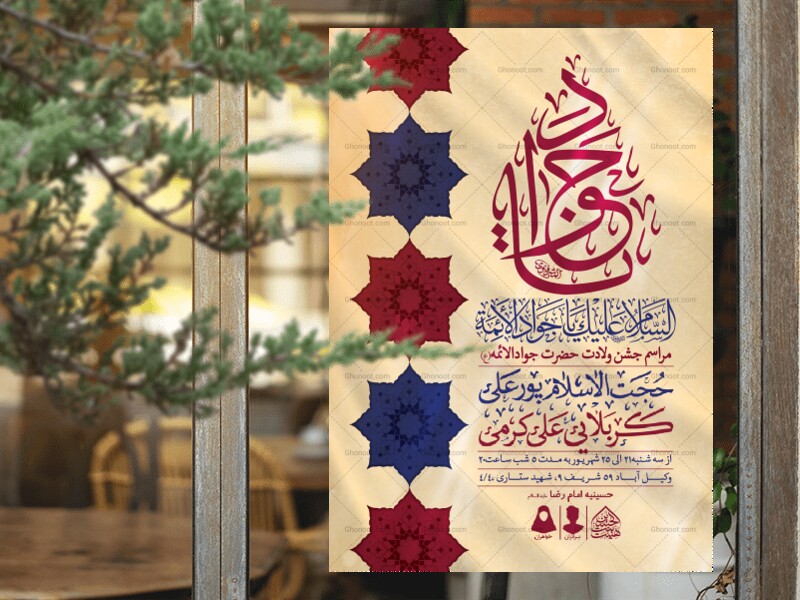 یا جواد
السلام علیک یا جواد الائمة
مراسم جشن ولادت حضرت جوادالائمه(ع)
حجت الاسلام پورعلی
کربلایی علی کرمی
از سه شنبه ۲۱ الی ۲۵ شهریور به مدت ۵ شب ساعت ۲۰
وکیل آباد ۵۹ شریف ۹، شهید ستاری ۴/۴۰
حسینیه امام رضا
برادران
خواهران
Ghonoot.com